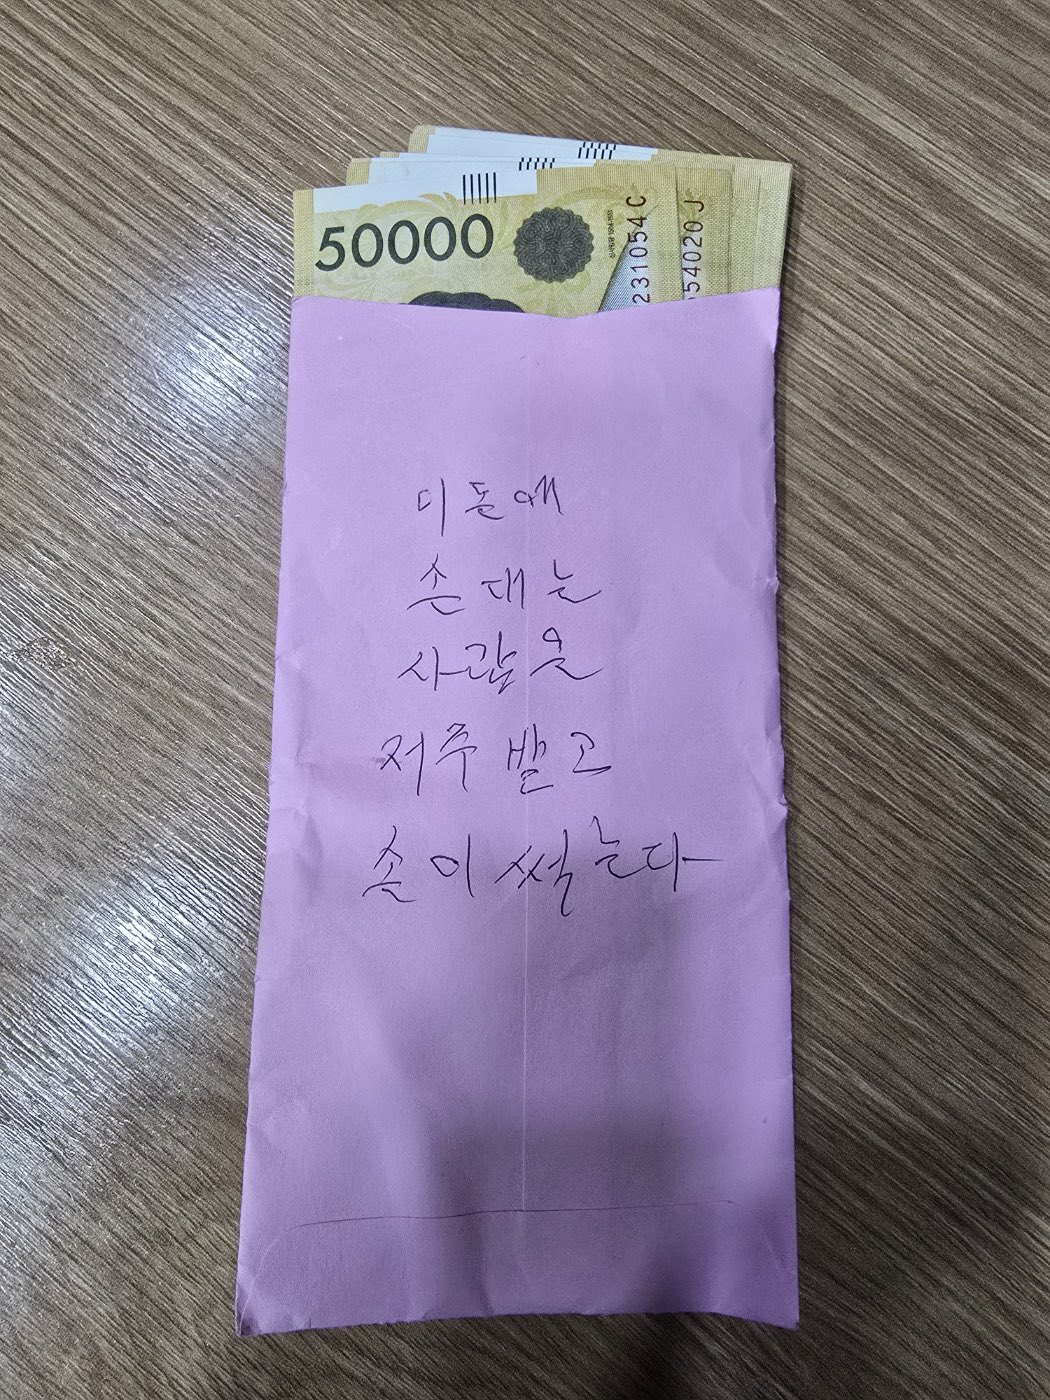 50000
231054 C
54020 J
이 돈에
손 대는
사람은
저주 받고
손이 썩는다